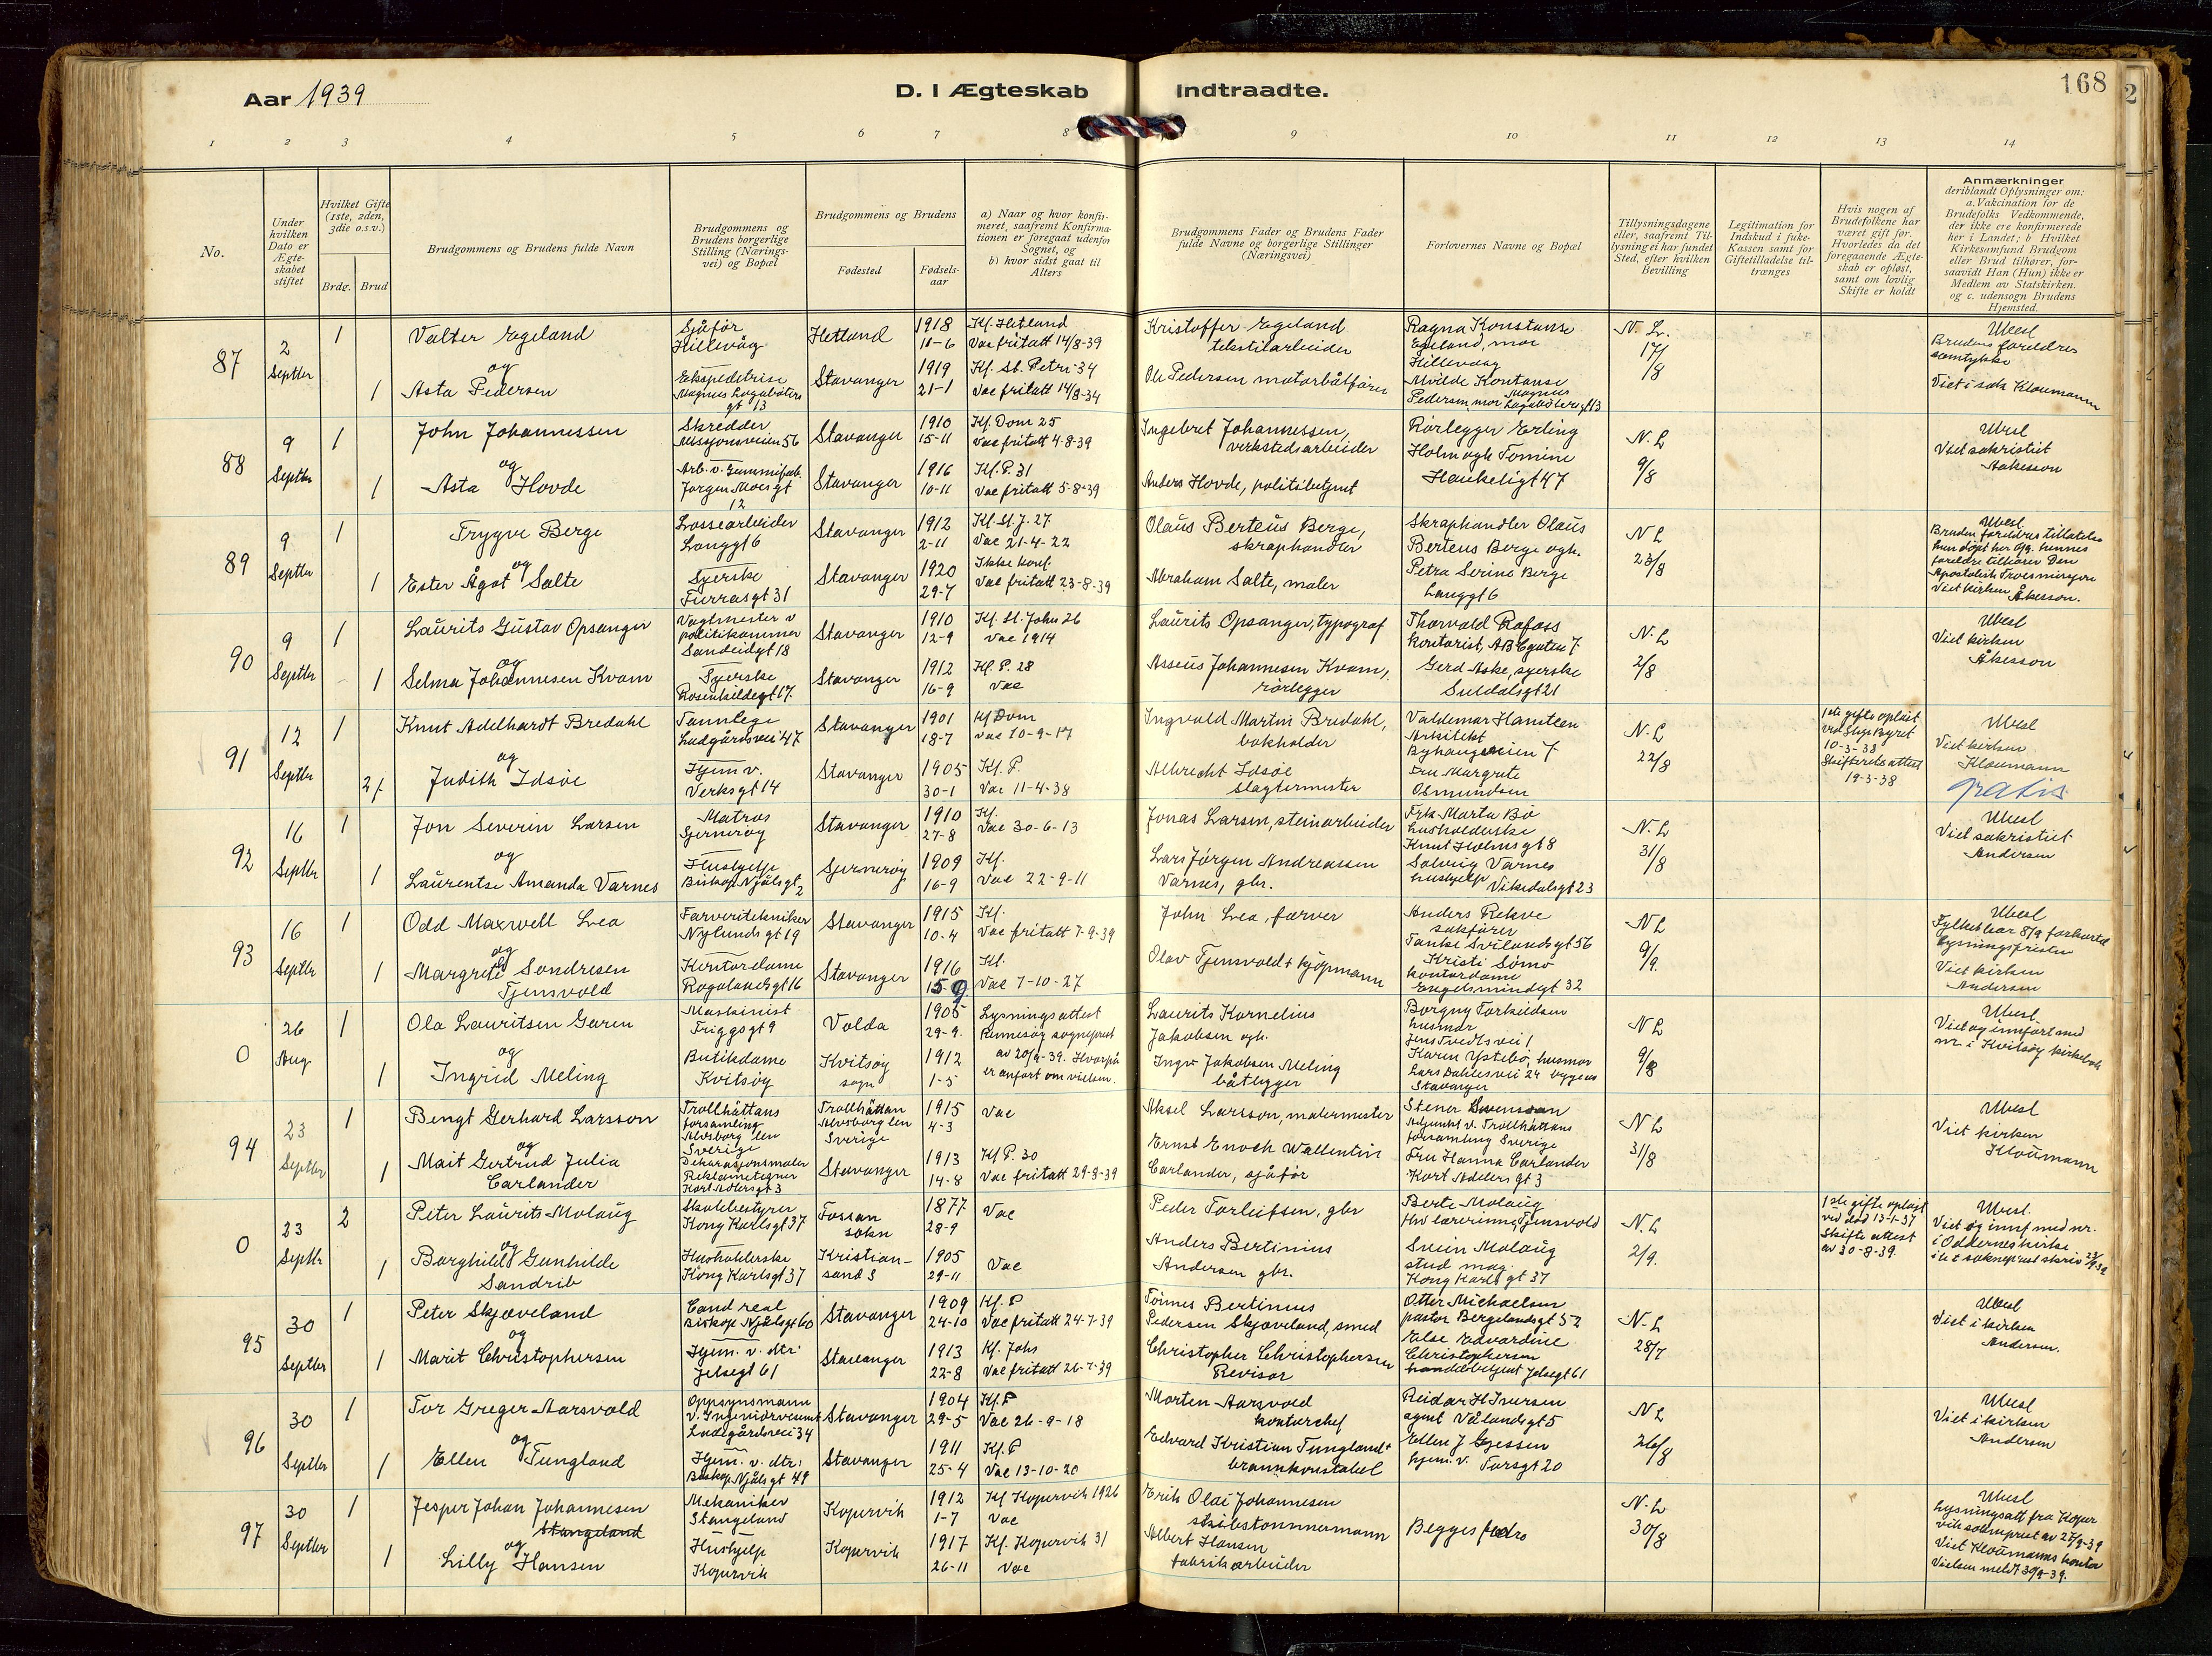 Aar 1939
D. I Ægteskab Indtraadte.
168
1 2 3 4 5 6 7 8 9 10 11 12 13 14
No.
Under hvilken Dato er Ægteskabet stiftet
Hvilket Gifte (1ste, 2den, 3die o.s.v.)
Brdg. Brud
Brudgommens og Brudens fulde Navn
Brudgommens og Brudens borgerlige Stilling (Næringsvei) og Bopæl
Brudgommens og Brudens
Fødested
Fødselsaar
a) Naar og hvor konfirmeret, saafremt Konfirmationen er foregaat udenfor Sognet, og
b) hvor sidst gaat til Alters
Brudgommens Fader og Brudens Fader fulde Navne og borgerlige Stillinger (Næringsvei)
Forlovernes Navne og Bopæl
Tillysningsdagene eller, saafremt Tillysning ei har fundet Sted, efter hvilken Bevilling
Legitimation for Indskud i Enke-Kassen samt for Giftetilladelse tiltrænges
Hvis nogen af Brudefolkene har været gift før. Hvorledes da det foregaaende Ægteskab er opløst, samt om lovlig Skifte er holdt
Anmærkninger
deriblandt Oplysninger om: a. Vakcination for de Brudefolks Vedkommende, der ikke ere konfirmerede her i Landet; b Hvilket Kirkesomfund Brudgom eller Brud tilhører, forsaavidt Han (Hun) ikke er Medlem av Statskirken. og c. udensogn Brudens Hjemsted.
87
2 Septbr
1 Valter Egeland
Sjåfør Hillevåg
Hetland
1918 11-6
Kf. Hetland
Vac fritatt 14/8-39
Kristoffer Egeland
tekstilarbeider
Ragna Konstanse Egeland, mor Hillevaag
N. L. 17/8
Ubesl
Brudens foreldres samtykke
Viet i sak Kloumann
og
1 Asta Pedersen
Ekspeditrise
Magnus Lagabøters gt 13
Stavanger
1919 21-1
Kf. St. Petri 34
Vac fritatt 14/8-34
Ole Pedersen motorbåtfører
Pedersen, mor Magnus Lagabøters gt 13
88
9 Septbr
1 John Johannessen
Skredder
Misjonsveien 56
Stavanger
1910 15-11
Kf. Dom 25
Vac fritatt 4-8-39
Ingebret Johannessen,
verkstedsarbeider
Rørlegger Erling Holm ogh. Tomine
Haukeligt 47
N. L 9/8
Ubesl
Viet sakristiet
Aakesson
og
1 Asta Hovde
Arb. v. Gummifab.
Jørgen Moes gt 12
Stavanger
1916 10-11
Kf. P. 31
Vac fritatt 5-8-39
Anders Hovde, politibetjent
89
9 Septbr
1 Trygve Berge
Lossearbeider
Langgt 6
Stavanger
1912 2-11
Kf. St. J. 27
Vac 21-4-22
Olaus Berteus Berge,
skraphandler
Skraphandler Olaus Berteus Berge ogh.
Petra Serine Berge
Langgt 6
N L 23/8
Ubesl
Bruden foreldres tillatelse
hun døpt her og hennes
foreldre tilhører Den
Apostolisk Troesmisjon
Viet kirken Åkesson.
og
1 Ester Ågot Salte
Syerske
Furrasgt 31
Stavanger
1920 29-7
Ikke konf.
Vac fritatt 23-8-39
Abraham Salte, maler
90
9 Septbr
1 Laurits Gustav Opsanger
Vagtmester v
politikammer
Sandeidgt 18
Stavanger
1910 12-9
Kf. St. Johs 26
Vac 1914
Laurits Opsanger, typograf
Thorvald Rafoss
kontorist, ABCgaten 7
Gerd Aske, syerske
Suldalsgt 21
N. L 2/8
Ubesl
Viet kirken
Åkesson
og
1 Selma Johannesen Kvam
Syerske
Rosenkildegt 17
Stavanger
1912 16-9
Kf. P. 28
Vac
Asseus Johannesen Kvam,
rørlegger
91
12 Septbr
1 Knut Adelhardt Bredahl
Tannlege
Ladgårdsvei 47
Stavanger
1901 18-7
Kf Dom
vac 10-9-17
Ingvald Martin Bredahl,
bokholder
Valdemar Hansteen
Arkitekt
Byhaugveien 7
Fru Margrete Osmundsen
N. L 22/8
1ste gifte opløst
ved Stgr Byret
10-3-38
Skifterets attest
19-3-38
Ubesl
Viet kirken
Kloumann
gratis
og
2 Judith Idsøe
Hjem v.
Verksgt 14
Stavanger
1905 30-1
Kf. P.
Vac 11-4-38
Albrecht Idsøe
slagtermester
92
16 Septbr
1 Jon Severin Larsen
Matros
Sjernerøy
Stavanger
1910 27-8
Kf.
Vac 30-6-13
Jonas Larsen, stenarbeider
Frk Marta Bø
husholderske
Knut Holmsgt 8
Solveig Varnes
hushjelp Vikedalsgt 23
N. L 31/8
Ubesl
Viet sakristiet
Andersen
og
1 Laurentse Amanda Varnes
Hushjelp
Biskop Njålsgt 2
Sjernerøy
1909 16-9
Kf.
Vac 22-9-11
Lars Jørgen Andreassen
Varnes, gbr.
93
16 Septbr
1 Odd Maxwell Lea
Farveritekniker
Nylundsgt 19
Stavanger
1915 10-4
Kf.
Vac fritatt 7-9-39
John Lea, farver
Anders Rekve
sakfører
Tanke Svilandsgt 56
Kristi Sømo
kontordame
Engelsmindegt 32
N L 9/9.
Ubesl
Fylket har 8/9 forkortet
lysningsfristen
Viet kirken
Andersen
og
1 Margrete Sondresen Tjensvold
Kontordame
Rogalandsgt 16
Stavanger
1916 15-9
Kf.
Vac 7-10-27
Olav Tjensvold + kjøpmann
0
26 Aug
1 Ola Lauritsen Garen
Maskinist
Friggsgt 9
Volda
1905 29-9.
Lysningsattest
Rennesøy sogneprest
av 20/9-39. Hvorpå
er anført om vielsen.
Laurits Kornelius
Jakobsen ogh.
Borgny Torkildsen
husmor
Jens Tvedtsvei 1
Karen Ystebø, husmor
Lars Dahlesvei 24
Stavanger
N L 9/8
Ubesl
Viet og innført med
nr. i Kvitsøy kirkebok
og
1 Ingrid Meling
Butikdame
Kvitsøy
Kvitsøy sogn
1912 1-5
Ingv Jakobsen Meling
båtbygger
94
23 Septbr
1 Bengt Gerhard Larsson
Trollhättans
forsamling
Alvsborg len
Sverige
Dekorasjonsmaler
Trollhättan
Alvsborg len
Sverige
1915 4-3
Vac
Aksel Larsson, malermester
Stener Svensson
Adjunkt v. Trollhättans
forsamling Sverige
Fru Hanna Carlander
Kort Adelersgt 3
N L 31/8
Ubesl
Viet kirken
Kloumann
og
1 Mait Gertrud Julia Carlander
Reklametegner
Kort Adlersgt 3
Stavanger
1913 14-8
Kf P. 30
Vac fritatt 29-8-39
Ernst Enoch Wallentin
Carlander, sjåfør
0
23 Septbr
2 Peter Laurits Molaug
Skolebestyrer
Kong Karlsgt 37
Fossan sokn
1877 28-9
Vac
Peder Torleifsen, gbr
Berte Molaug
fhv lærerinne, Tjensvold
Svein Molaug
stud mag.
Kong Karlsgt 37
N. L 2/9.
1ste gifte opløst
ved død 13-1-37
Skifte attest
av 30-8-39.
Ubesl.
Viet og innf med nr.
i Oddernes kirke
og
1 Borghild Gunhilde Sandrib
Husholderske
Kong Karlsgt 37
Kristiansand S
1905 29-11
Vac
Anders Bertinius
Andersen gbr.
95
30 Septbr
1 Peter Skjæveland
Cand real
Biskop Njålsgt 60
Stavanger
1909 24-10
Kf. P
Vac fritatt 24-7-39
Tønnes Bertinius
Pedersen Skjæveland, smed
Otter Michaelsen
pastor Bergelandsgt 52
Else Edvardine
Christophersen
handelsbetjent Jelsegt 61
N. L 28/7
Ubesl
Viet i kirken
Andersen.
og
1 Marit Christophersen
Hjem. v. dtr.
Jelsegt 61
Stavanger
1913 22-8
Kf. Johs
Vac fritatt 26-7-39
Christopher Christophersen
Revisor
96
30 Septbr
1 Tor Greger Aarsvold
Oppsynsmann
v. Ingeniørvesenet
Ladegårdsvei 34
Stavanger
1904 29-5
Kf. P
Vac 26-9-18
Morten Aarsvold
kontorchef
Reidar H Iversen
agent Vålandsgt 5
Ellen J Gjessen
hjem. v. Torsgt 20
N L 26/8
Ubesl
Viet i kirken
Andersen
og
1 Ellen Tungland
Hjem. v. dtr:
Biskop Njålsgt 49
Stavanger
1911 25-4
Kf. P
Vac 13-10-20
Edvard Kristian Tungland +
brannkonstabel
97
30 Septbr
1 Jesper Johan Johannesen
Stangeland
Mekaniker
Stangeland
Kopervik
1912 1-7
Kf Kopervik 1926
Vac
Erik Olai Johannesen
skibstømmermann
Begges fedre
N. L 30/8
Ubesl
Lysningsatt fra Koper
vik sokneprest av 27/9-39
Viet Kloumanns kontor
Vielsen meldt 30/9-39.
og
1 Lilly Hansen
Hushjelp
Kopervik
Kopervik
1917 26-11
Kf. Kopervik 31
Vac
Albert Hansen
fabrikarbeider